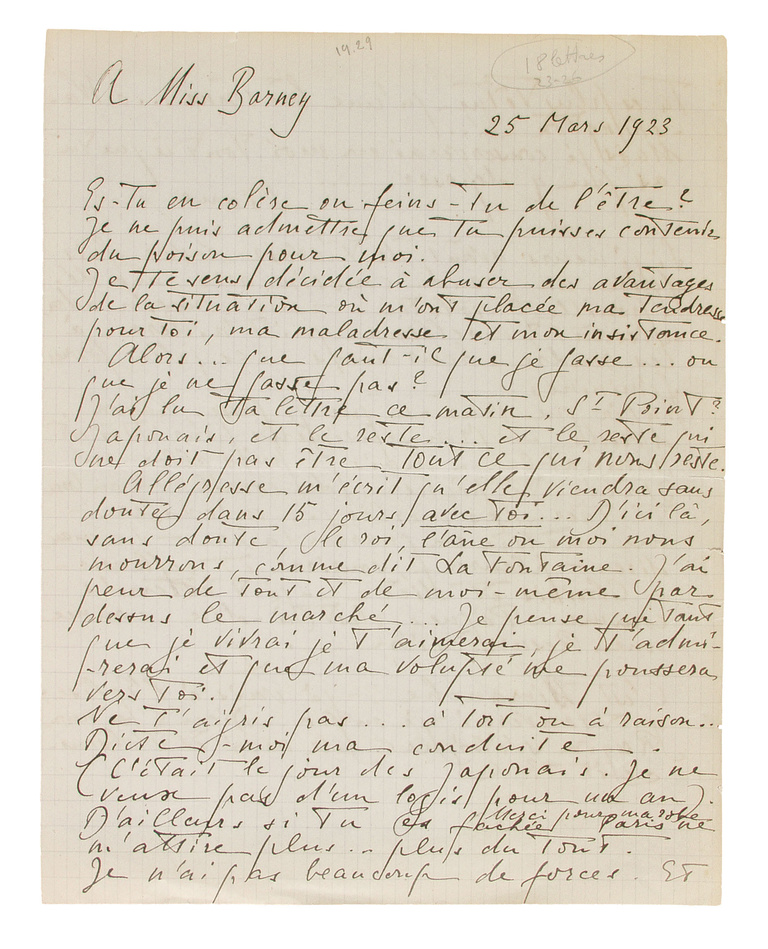 19.29
18 lettres
23-26
A Miss Barney
25 Mars 1923
Es-tu en colère ou feins-tu de l'être ?
Je ne puis admettre que tu puisses contenir
du poison pour moi.
Je te sens décidée à abuser des avantages
de la situation où m'ont placée ma tendresse
pour toi, ma maladresse et mon insistance.
Alors... que faut-il que je fasse... ou
que je ne fasse pas ?
J'ai lu ta lettre ce matin. St Point ?
Japonais, et le reste... et le reste qui
ne doit pas être tout ce qui nous reste.
Allégresse m'écrit qu'elle viendra sans
doute dans 15 jours avec toi... D'ici là,
sans doute le roi, l'âne ou moi nous
mourrons, comme dit La Fontaine. J'ai
peur de tout et de moi-même par
dessus le marché,... Je pense que tant
que je vivrai je t'aimerai, je t'admi-
-rerai et que ma volupté me poussera
vers toi.
Ne t'aigris pas... à tort ou à raison...
Dicte-moi ma conduite.
(C'était le jour des Japonais. Je ne
veux pas d'un logis pour un an).
Merci pour ma robe
D'ailleurs si tu es fâchée Paris ne
m'attire plus... plus du tout.
Je n'ai pas beaucoup de forces. Et